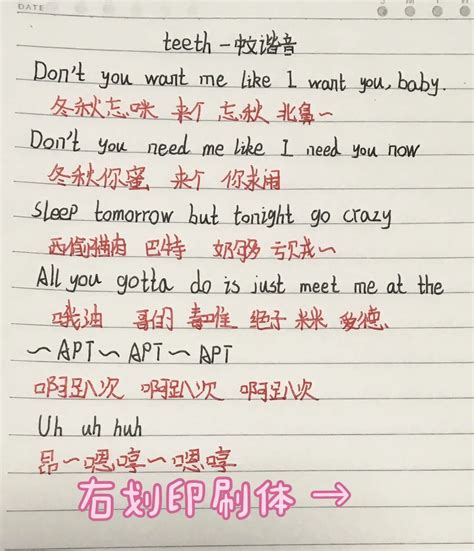 DATE
teeth-蚊谐音
Don't you want me like I want you, baby.
冬秋忘咪 来个 忘秋 北鼻~
Don't you need me like I need you now
冬秋你蜜 来个 你求闹
Sleep tomorrow but tonight go crazy
西偷猫肉 巴特 奶够 亏戎~
All you gotta do is just meet me at the
哦油 哥的 毒唯 绝子 咪 爱德.
~APT~APT~APT
啊趴次 啊趴次 啊趴次
Uh uh huh
昂~嗯哼~嗯哼
右划印刷体→